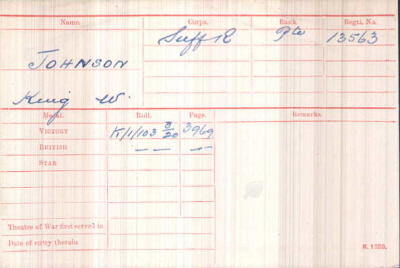 Name. Corps. Rank Regtl. No.
Suff R Pte 13563
JOHNSON
King W.
Medal. Roll. Page. Remarks.
VICTORY K/1/103 B/20 3969
BRITISH — — — —
STAR
Theatre of War first served in
Date of entry therein
K. 1380.